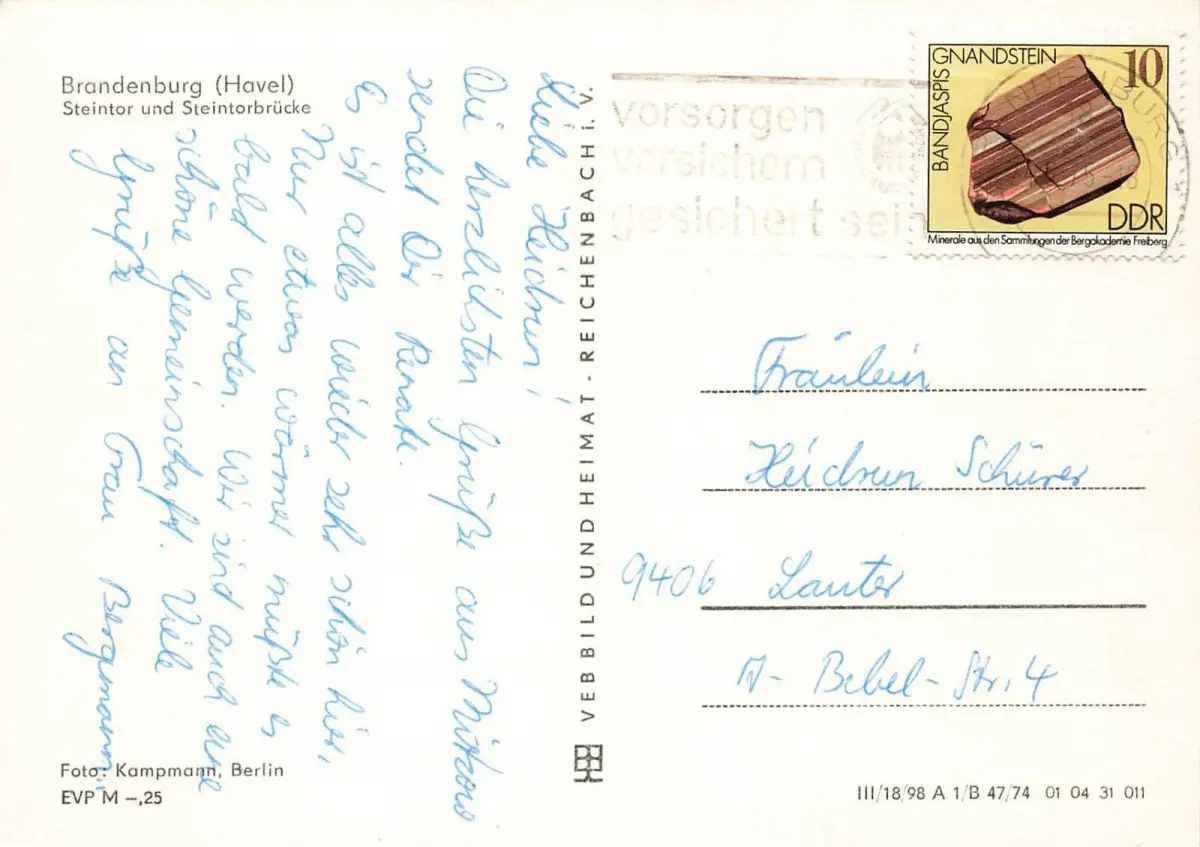 Brandenburg (Havel)
Steintor und Steintorbrücke
Liebe Heidrun!
Die herzlichsten Grüße aus Mötzow
sendet Dir Renate.
Es ist alles wieder sehr schön hier,
Nur etwas wärmer müßte es
bald werden. Wir sind auch eine
schöne Gemeinschaft. Viele
Grüße an Frau Bergmann.
Foto: Kampmann, Berlin
EVP M –,25
VEB BILD UND HEIMAT - REICHENBACH i. V.
vorsorgen
versichern
gesichert sein
BANDJASPIS GNANDSTEIN
10
DDR
Minerale aus den Sammlungen der Bergakademie Freiberg
Fräulein
Heidrun Schürer
9406 Lauter
A-Bebel-Str. 4
III/18/98 A 1/B 47/74 01 04 31 011